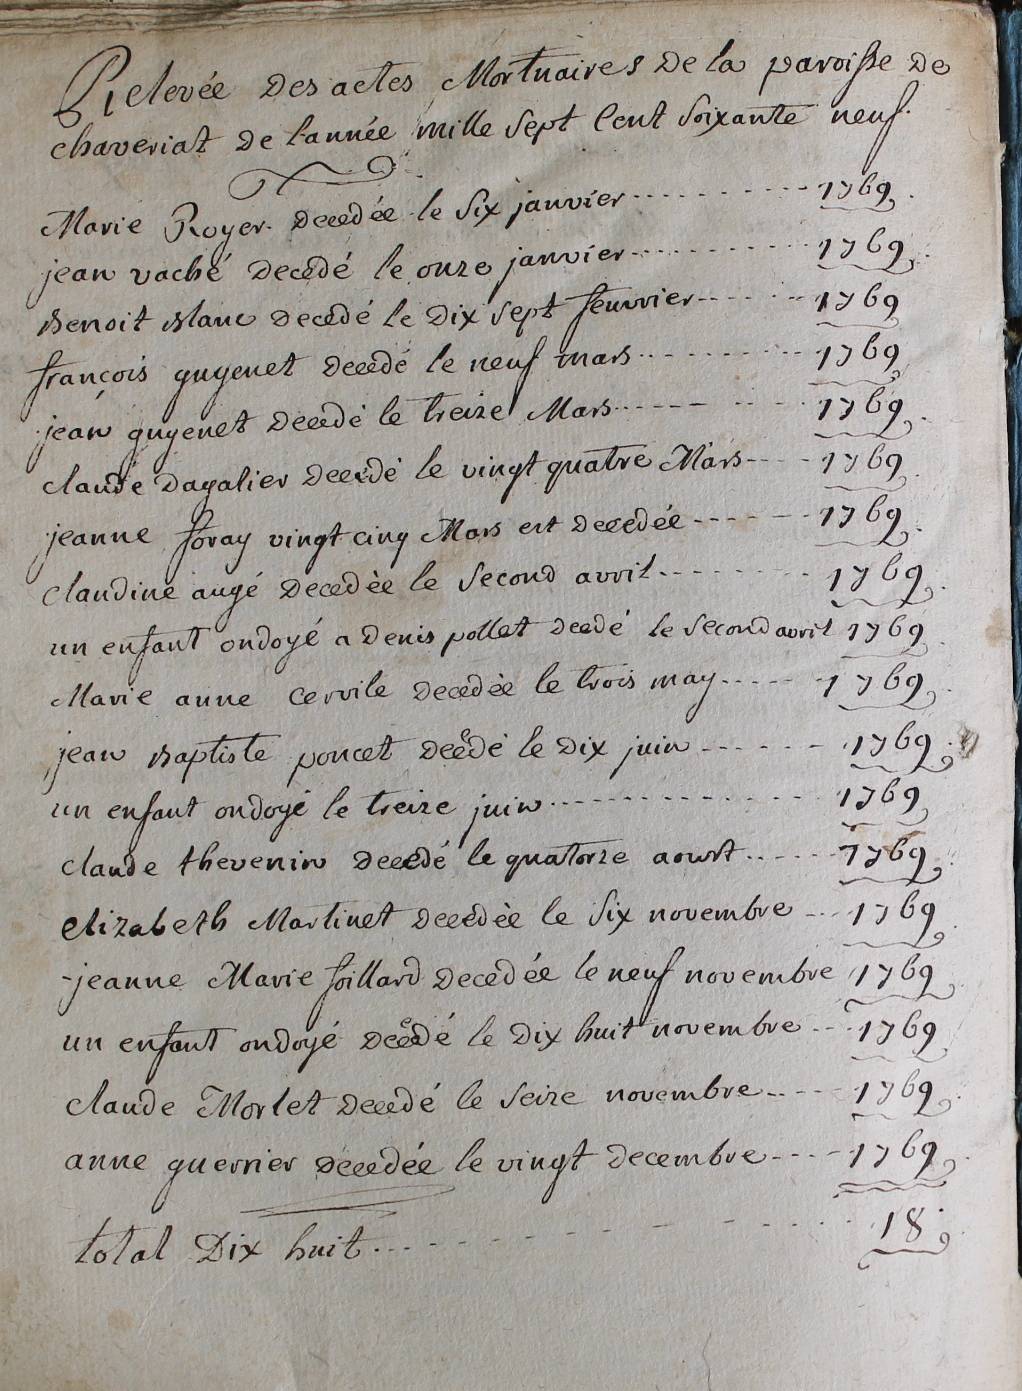 Relevée des actes Mortuaires de la paroisse de
chaveriat de l'année mille sept Cent soixante neuf.
Marie Royer. decedée le six janvier 1769
jean vaché decedé le onze janvier 1769
Benoit Blanc decedé le Dix sept feuvrier 1769
françois guyenet decedé le neuf mars 1769
jean guyenet decedé le treize Mars 1769
claude Dagalier decedé le vingt quatre Mars 1769
jeanne foray vingt cinq Mars est decedée 1769
claudine augé decedèe le second avril 1769
un enfant ondoyé a Denis pollet decdé le second avril 1769
Marie anne Cervile decedèe le trois may 1769
jean Baptiste poncet decedé le Dix juin 1769
un enfant ondoyé le treize juin 1769
claude thevenin decedé le quatorze aoust 1769
elizabeth Martinet decedèe le six novembre 1769
jeanne Marie foillard decedée le neuf novembre 1769
un enfant ondoyé decedé le Dix huit novembre 1769
claude Morlet decedé le seize novembre 1769
anne guerrier decedée le vingt decembre 1769
total Dix huit 18